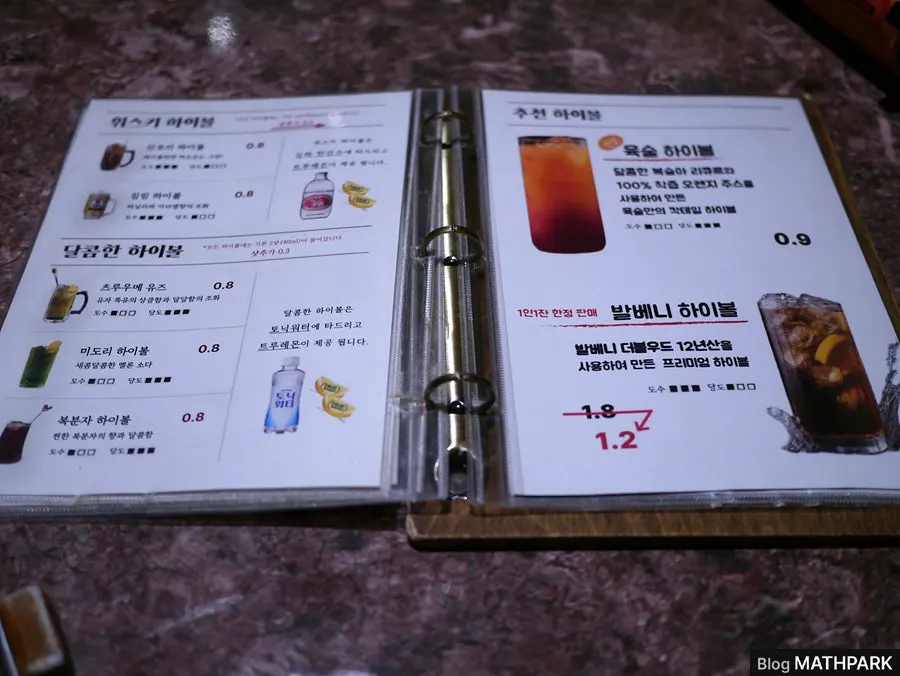 위스키 하이볼
산토리 하이볼
0.8
도수 ■■■ 당도 ■□□
짐빔 하이볼
0.8
도수 ■■■ 당도 ■□□
위스키 하이볼은
진저 탄산수에 타드리고
트루레몬이 제공 됩니다.
달콤한 하이볼
*모든 하이볼에는 기본 2샷(40ml)이 들어갑니다.
샷추가 0.3
츠루우메 유즈
0.8
유자 특유의 상큼함과 달달함의 조화
도수 ■□□ 당도 ■■■
미도리 하이볼
0.8
새콤달콤한 멜론 소다
도수 ■□□ 당도 ■■■
복분자 하이볼
0.8
찐한 복분자의 향과 달콤함
도수 ■□□ 당도 ■■■
달콤한 하이볼은
토닉워터에 타드리고
트루레몬이 제공 됩니다.
토닉
워터
추천 하이볼
육술 하이볼
달콤한 복숭아 리큐르와
100% 착즙 오렌지 주스를
사용하여 만든
육술만의 칵테일 하이볼
도수 ■□□ 당도 ■■■
0.9
1인1잔 한정 판매
발베니 하이볼
발베니 더블우드 12년산을
사용하여 만든 프리미엄 하이볼
도수 ■■■ 당도 ■□□
1.8
1.2
Blog MATHPARK